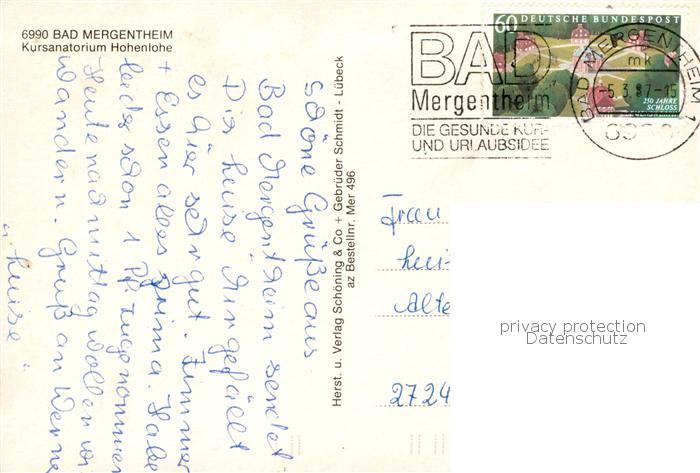 6990 BAD MERGENTHEIM
Kursanatorium Hohenlohe
60 DEUTSCHE BUNDESPOST
250 JAHRE
SCHLOSS
BAD
Mergentheim
DIE GESUNDE KUR-
UND URLAUBSIDEE
BAD MERGENTHEIM 1
mk
-5.3.87-15
Schöne Grüße aus
Bad Mergentheim sendet
Dir Luise. Mir gefällt
es hier sehr gut. Zimmer
+ Essen alles prima. Habe
leider schon 1 Pf. zugenommen
Heute nachmittag wollen wir
wandern. Gruß an Werner
Luise
Herst. u. Verlag Schöning & Co + Gebrüder Schmidt - Lübeck
az Bestellnr. Mer 496
Frau
Lui
Alte
2724
privacy protection
Datenschutz